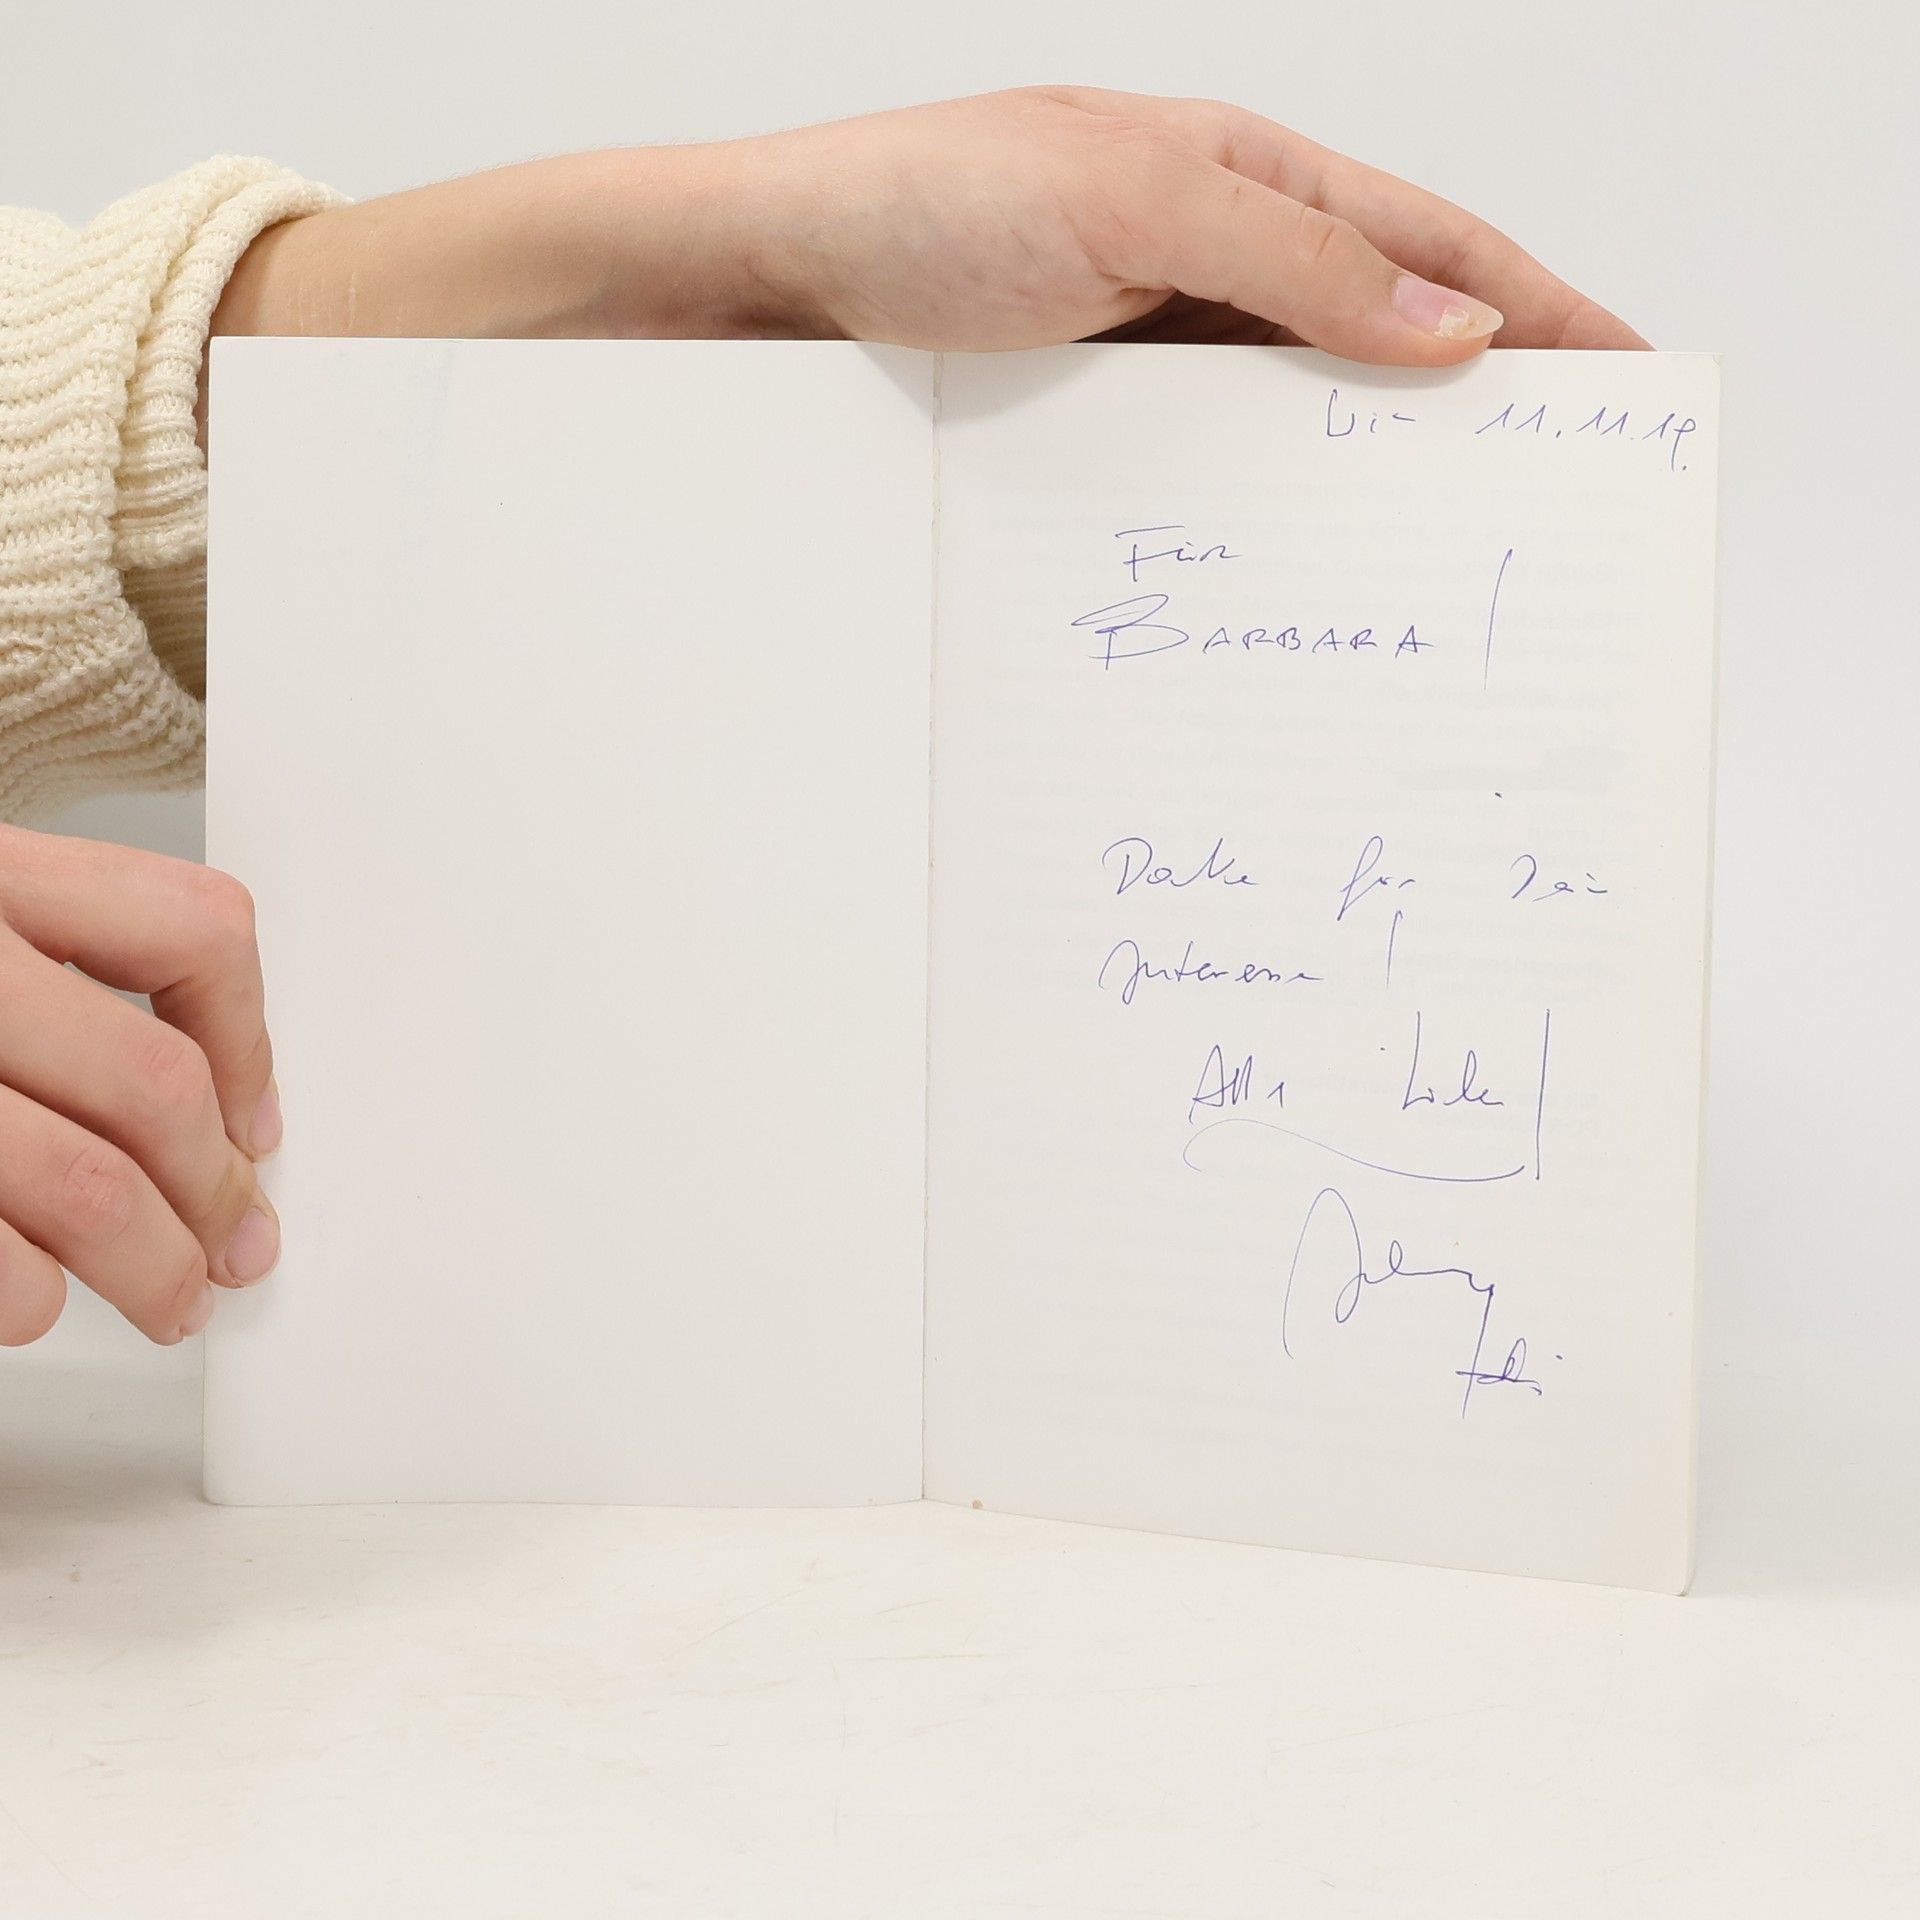 11.11.19
Für
BARBARA!
Danke für Dein
Interesse!
Alles Liebe!